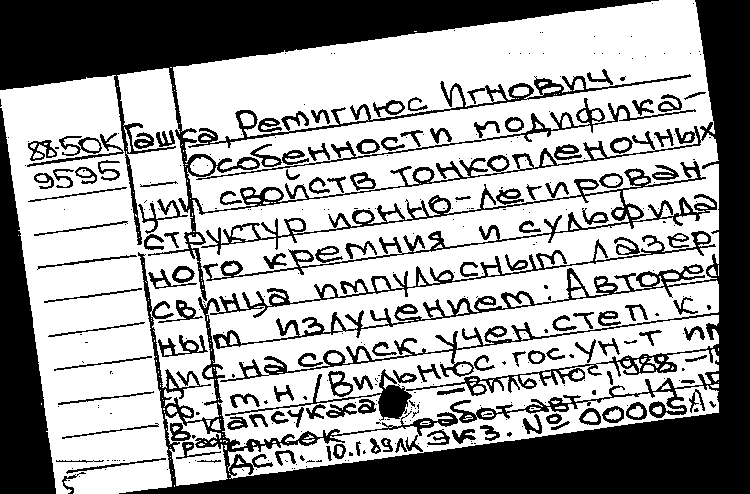 88-5ОК
9595
Гашка, Ремигиюс Игнович.
Особенности модифика-
ции свойств тонкопленочных
структур ионно-легирован-
ного кремния и сульфида
свинца импульсным лазер-
ным излучением: Автореф
дис. на соиск. учен. степ. к.
ф.-м.н. / Вильнюс. гос. ун-т им
В. Капсукаса — Вильнюс, 1988. -
список работ авт.: с. 14-
ДСП. 10.1.89 ЭКЗ. № 00005